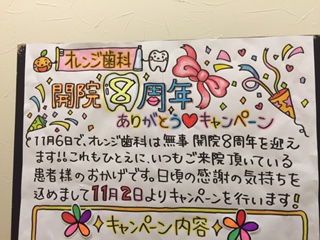 オレンジ歯科
開院8周年
ありがとう♥キャンペーン
11月6日で、オレンジ歯科は無事 開院8周年を迎え
ます!!これもひとえに、いつもご来院頂いている
患者様のおかげです。日頃の感謝の気持ちを
込めまして11月2日よりキャンペーンを行います!
キャンペーン内容